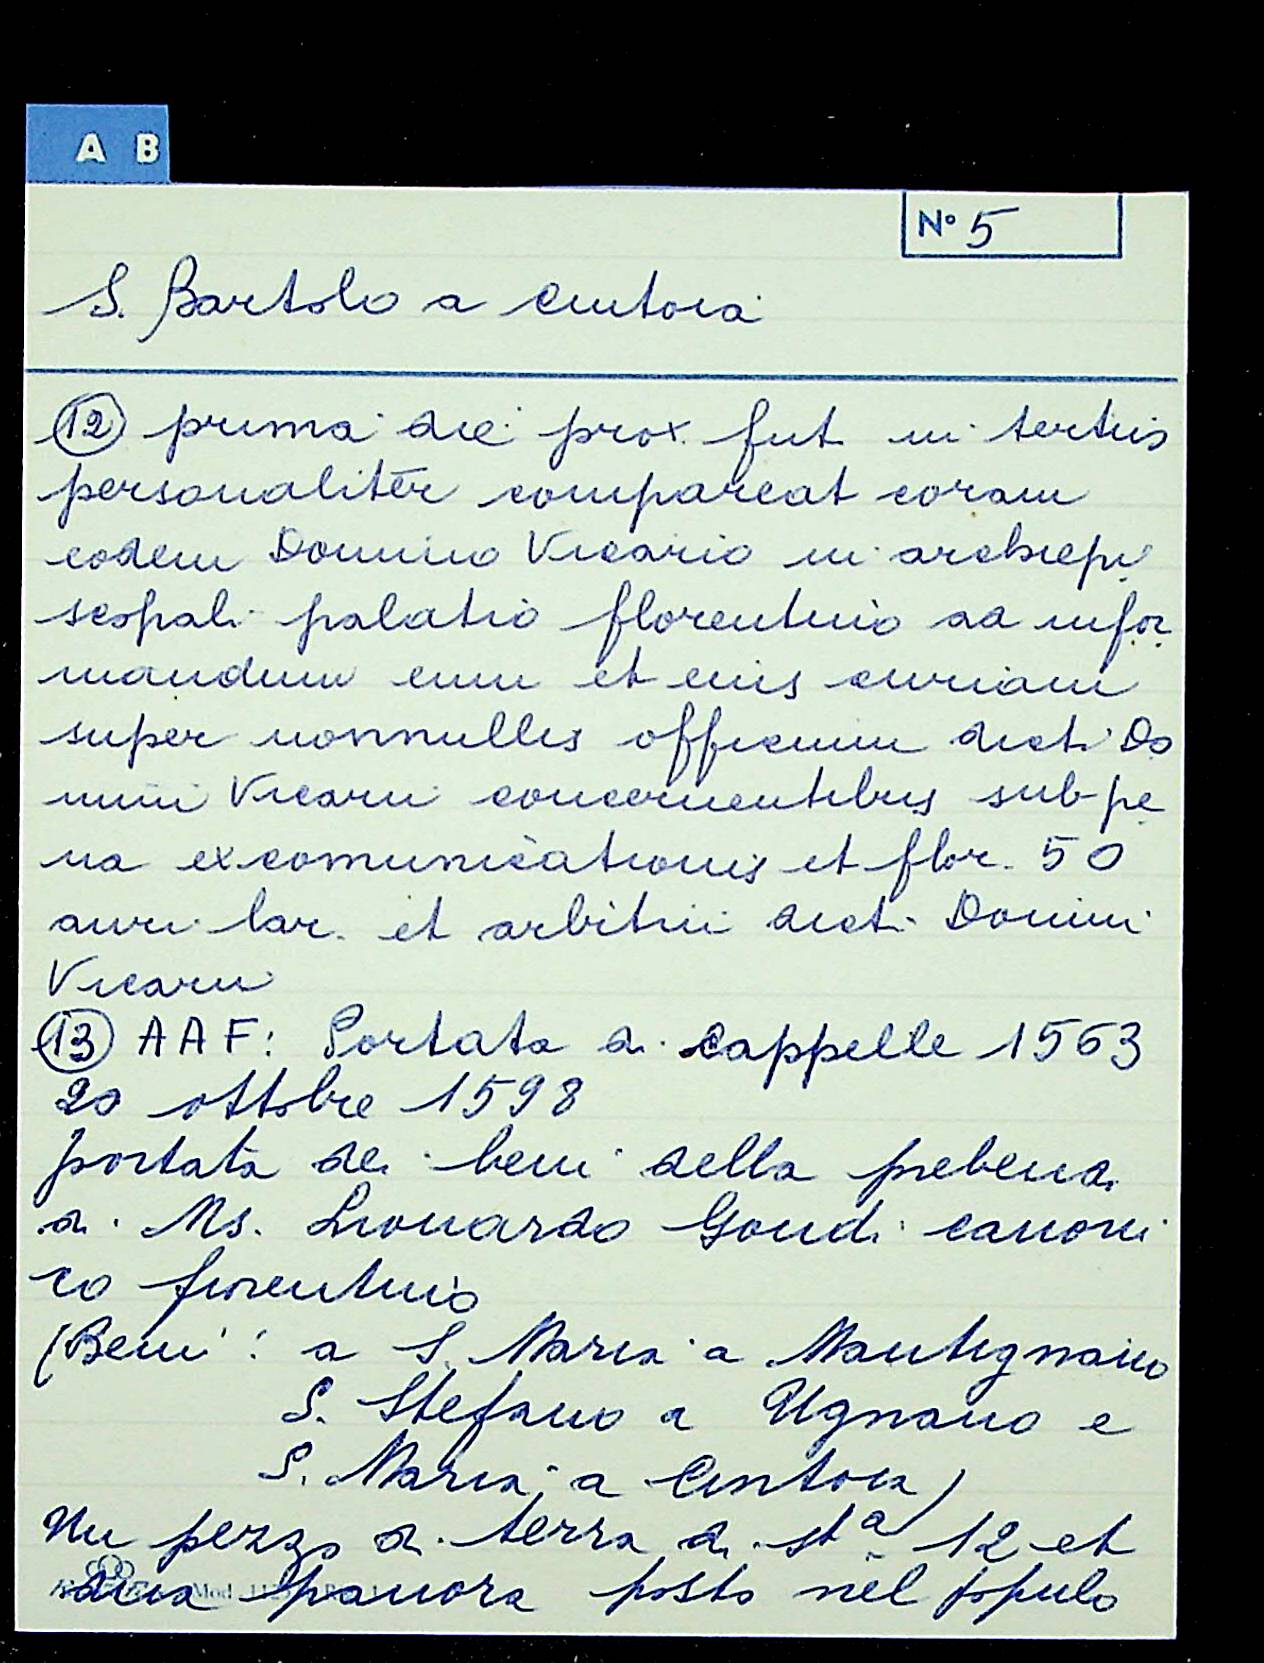 A B
N° 5
S. Bartolo a Cintoia
(12) prima die prox. fut. in tertiis
personaliter compareat coram
eodem Domino Vicario in archiepi
scopali palatio florentino ad infor
mandum eum et eius curiam
super nonnullis officium dicti Do
mini Vicarii concernentibus sub pe
na excomunicationis et flor. 50
auri lar. et arbitrii dicti Domini
Vicarii
(13) AAF: Portata di cappelle 1563
20 ottobre 1598
portata dei beni della prebenda
di Ms. Lionardo Gondi canoni
co fiorentino
(Beni: a S. Maria a Mantignano
S. Stefano a Ugnano e
S. Maria a Cintoia)
Un pezzo di terra di st.a 12 et
panora posto nel populo